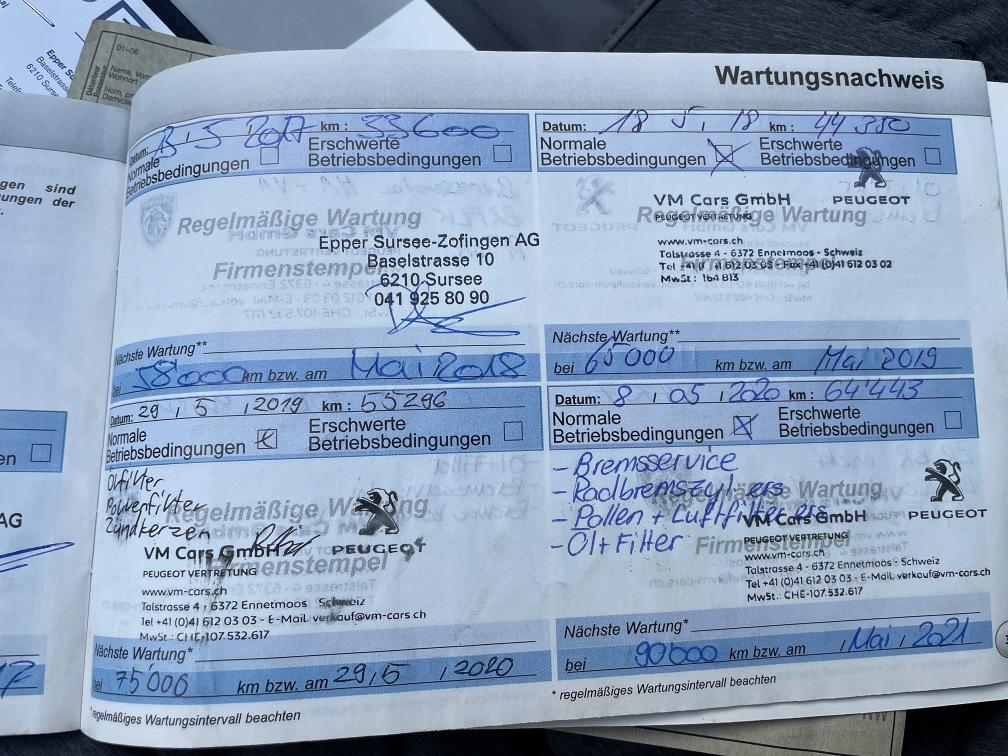 01-06
Epper Su
Baselstrasse
6210 Surse
Telefo
Name, Vorn
Wohnort
Domicile
gen sind
ungen der
AG
Wartungsnachweis
Datum: 3, 5 2017 km: 33600
Normale Betriebsbedingungen
Erschwerte Betriebsbedingungen
Regelmäßige Wartung
Firmenstempel
Epper Sursee-Zofingen AG
Baselstrasse 10
6210 Sursee
041 925 80 90
Nächste Wartung**
bei 58000 km bzw. am Mai 2018
Datum: 18 5, 18 km: 44 350
Normale Betriebsbedingungen
Erschwerte Betriebsbedingungen
Regelmäßige Wartung
Firmenstempel
VM Cars GmbH
PEUGEOT VERTRETUNG
PEUGEOT
www.vm-cars.ch
Talstrasse 4 - 6372 Ennetmoos - Schweiz
Tel +41 (0)41 612 03 03 - Fax +41 (0)41 612 03 02
MwSt.: 164 813
Nächste Wartung**
bei 65000 km bzw. am Mai 2019
Datum: 29, 5, 2019 km: 55296
Normale Betriebsbedingungen
Erschwerte Betriebsbedingungen
Ölfilter
Pollenfilter
Zündkerzen
Regelmäßige Wartung
Firmenstempel
VM Cars GmbH
PEUGEOT
PEUGEOT VERTRETUNG
www.vm-cars.ch
Talstrasse 4 - 6372 Ennetmoos Schweiz
Tel +41 (0)41 612 03 03 - E-Mail verkauf@vm-cars.ch
MwSt.: CHE-107.532.617
Nächste Wartung*
bei 75000 km bzw. am 29,5, 2020
*regelmäßiges Wartungsintervall beachten
Datum: 8, 05, 2020 km: 64'443
Normale Betriebsbedingungen
Erschwerte Betriebsbedingungen
- Bremsservice
- Radbremszyl. ers
- Pollen + Luftfilter ers
- Öl + Filter
Regelmäßige Wartung
Firmenstempel
VM Cars GmbH
PEUGEOT
PEUGEOT VERTRETUNG
www.vm-cars.ch
Talstrasse 4 - 6372 Ennetmoos - Schweiz
Tel +41 (0)41 612 03 03 - E-Mail: verkauf@vm-cars.ch
MwSt.: CHE-107.532.617
Nächste Wartung*
bei 90000 km bzw. am , Mai, 2021
* regelmäßiges Wartungsintervall beachten